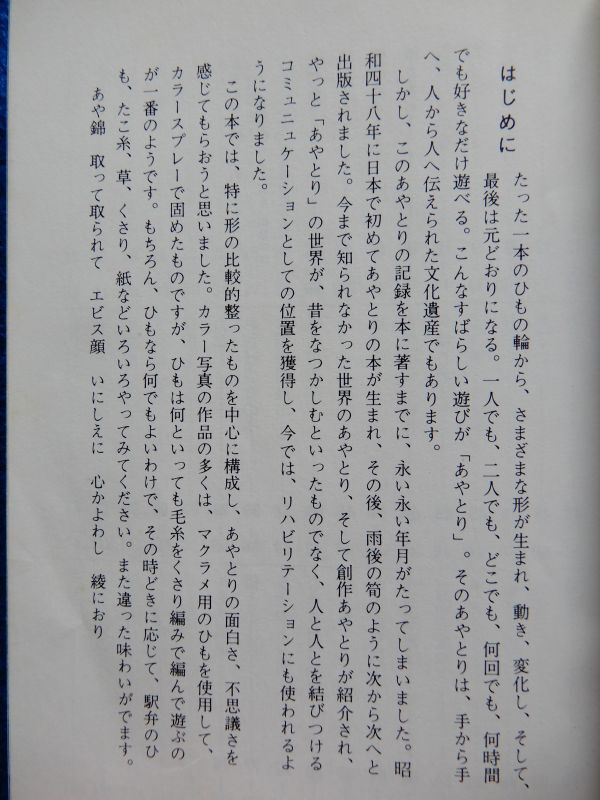 はじめに
たった一本のひもの輪から、さまざまな形が生まれ、動き、変化し、そして、
最後は元どおりになる。一人でも、二人でも、どこでも、何回でも、何時間
でも好きなだけ遊べる。こんなすばらしい遊びが「あやとり」。そのあやとりは、手から手
へ、人から人へ伝えられた文化遺産でもあります。
しかし、このあやとりの記録を本に著すまでに、永い永い年月がたってしまいました。昭
和四十八年に日本で初めてあやとりの本が生まれ、その後、雨後の筍のように次から次へと
出版されました。今まで知られなかった世界のあやとり、そして創作あやとりが紹介され、
やっと「あやとり」の世界が、昔をなつかしむといったものでなく、人と人とを結びつける
コミュニュケーションとしての位置を獲得し、今では、リハビリテーションにも使われるよ
うになりました。
この本では、特に形の比較的整ったものを中心に構成し、あやとりの面白さ、不思議さを
感じてもらおうと思いました。カラー写真の作品の多くは、マクラメ用のひもを使用して、
カラースプレーで固めたものですが、ひもは何といっても毛糸をくさり編みで編んで遊ぶの
が一番のようです。もちろん、ひもなら何でもよいわけで、その時どきに応じて、駅弁のひ
も、たこ糸、草、くさり、紙などいろいろやってみてください。また違った味わいがでます。
あや錦　取って取られて　エビス顔　いにしえに　心かよわし　綾におり